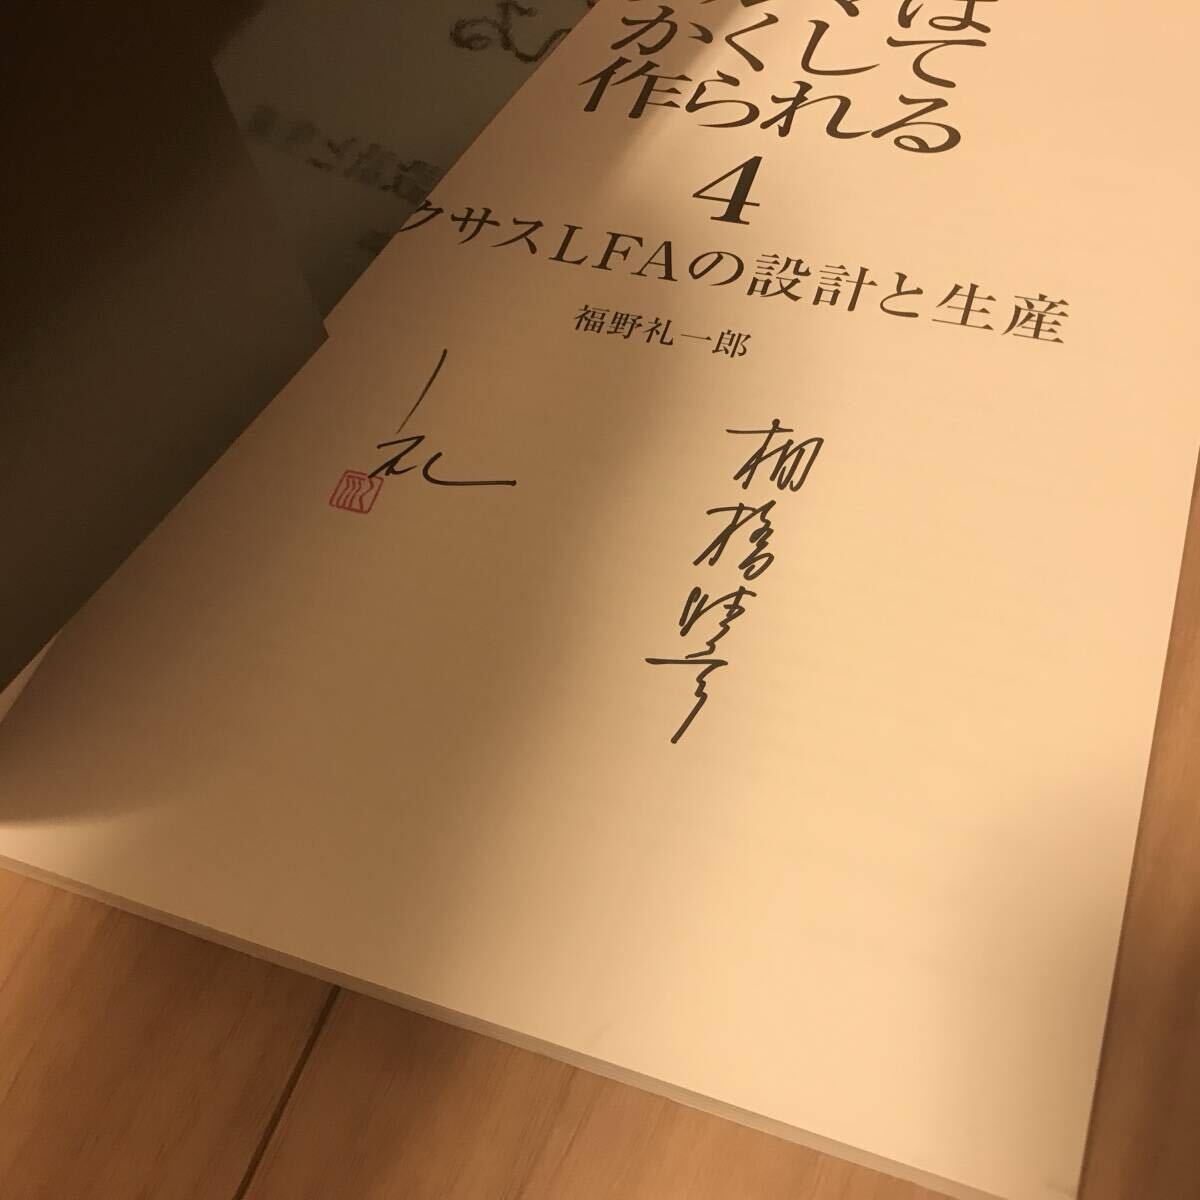 は
かくして
作られる
4
クサスLFAの設計と生産
福野礼一郎
棚橋晴彦
礼